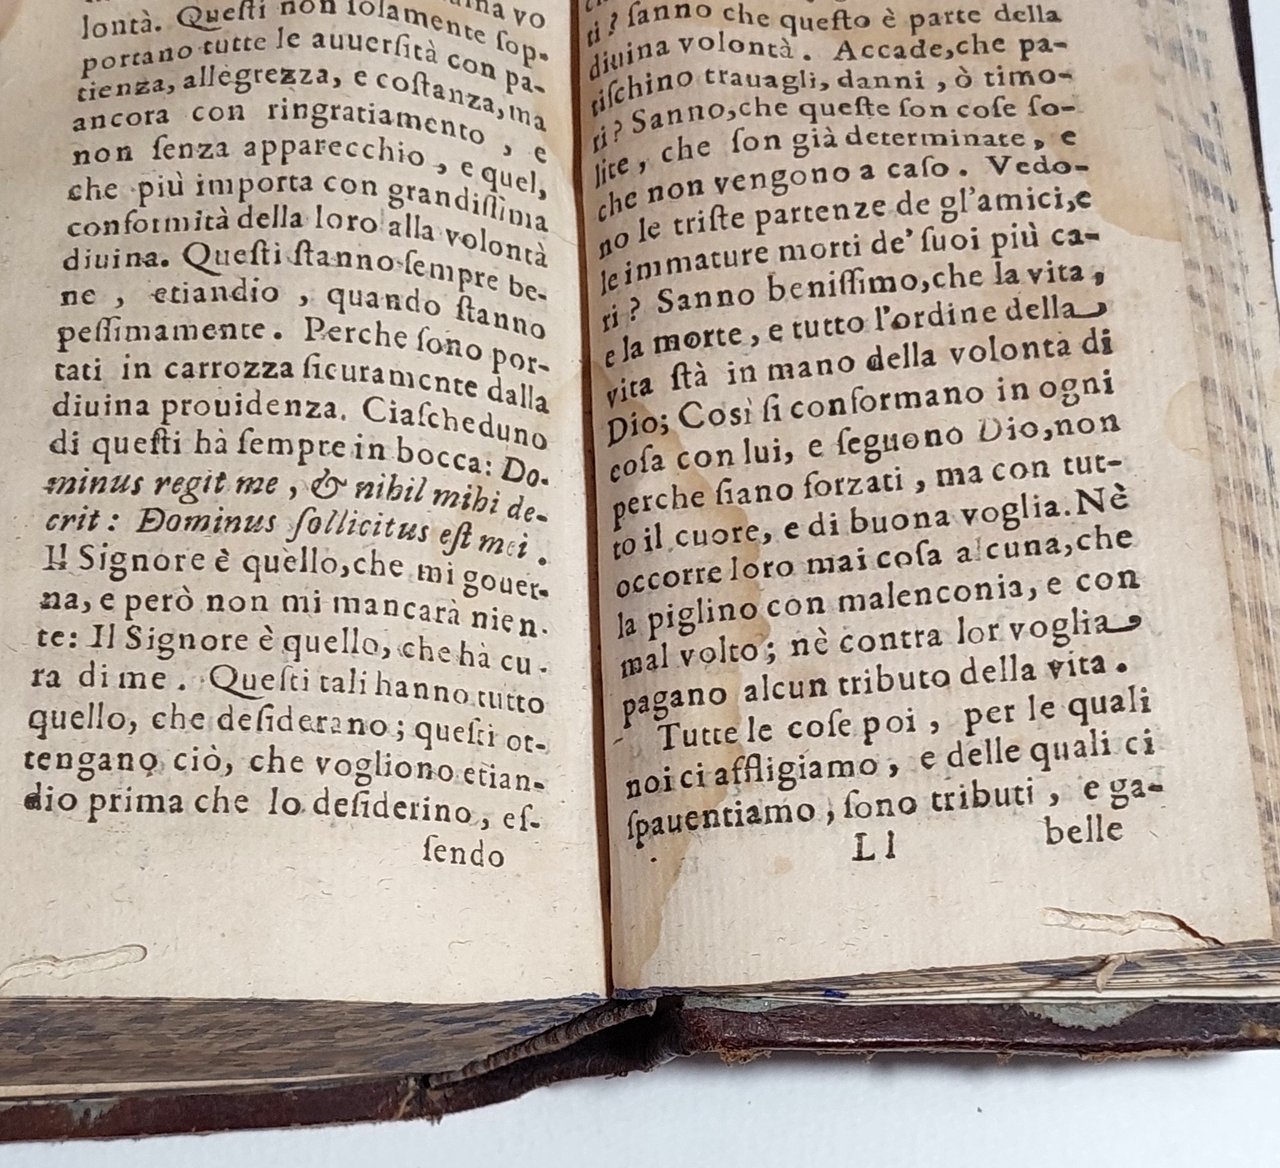 lontà. Queſti non ſolamente ſop-
portano tutte le auuerſità con pa-
tienza, allegrezza, e coſtanza, ma
ancora con ringratiamento, e
non ſenza apparecchio, e quel,
che più importa con grandiſſima
conformità della loro alla volontà
diuina. Queſti ſtanno ſempre be-
ne, etiandio, quando ſtanno
peſſimamente. Perche ſono por-
tati in carrozza ſicuramente dalla
diuina prouidenza. Ciaſcheduno
di queſti hà ſempre in bocca: Do-
minus regit me, & nihil mihi de-
erit: Dominus ſollicitus eſt mei.
Il Signore è quello, che mi gouer-
na, e però non mi mancarà nien-
te: Il Signore è quello, che hà cu-
ra di me. Queſti tali hanno tutto
quello, che deſiderano; queſti ot-
tengano ciò, che vogliono etian-
dio prima che lo deſiderino, eſ-
ſendo
ti? ſanno che queſto è parte della
diuina volontà. Accade, che pa-
tiſchino trauagli, danni, ò timo-
ri? Sanno, che queſte ſon coſe ſo-
lite, che ſon già determinate, e
che non vengono a caſo. Vedo-
no le triſte partenze de gl'amici, e
le immature morti de' ſuoi più ca-
ri? Sanno beniſſimo, che la vita,
e la morte, e tutto l'ordine della
vita ſtà in mano della volonta di
Dio; Così ſi conformano in ogni
coſa con lui, e ſeguono Dio, non
perche ſiano forzati, ma con tut-
to il cuore, e di buona voglia. Nè
occorre loro mai coſa alcuna, che
la piglino con malenconia, e con
mal volto; nè contra lor voglia
pagano alcun tributo della vita.
Tutte le coſe poi, per le quali
noi ci affligiamo, e delle quali ci
ſpauentiamo, ſono tributi, e ga-
Ll belle